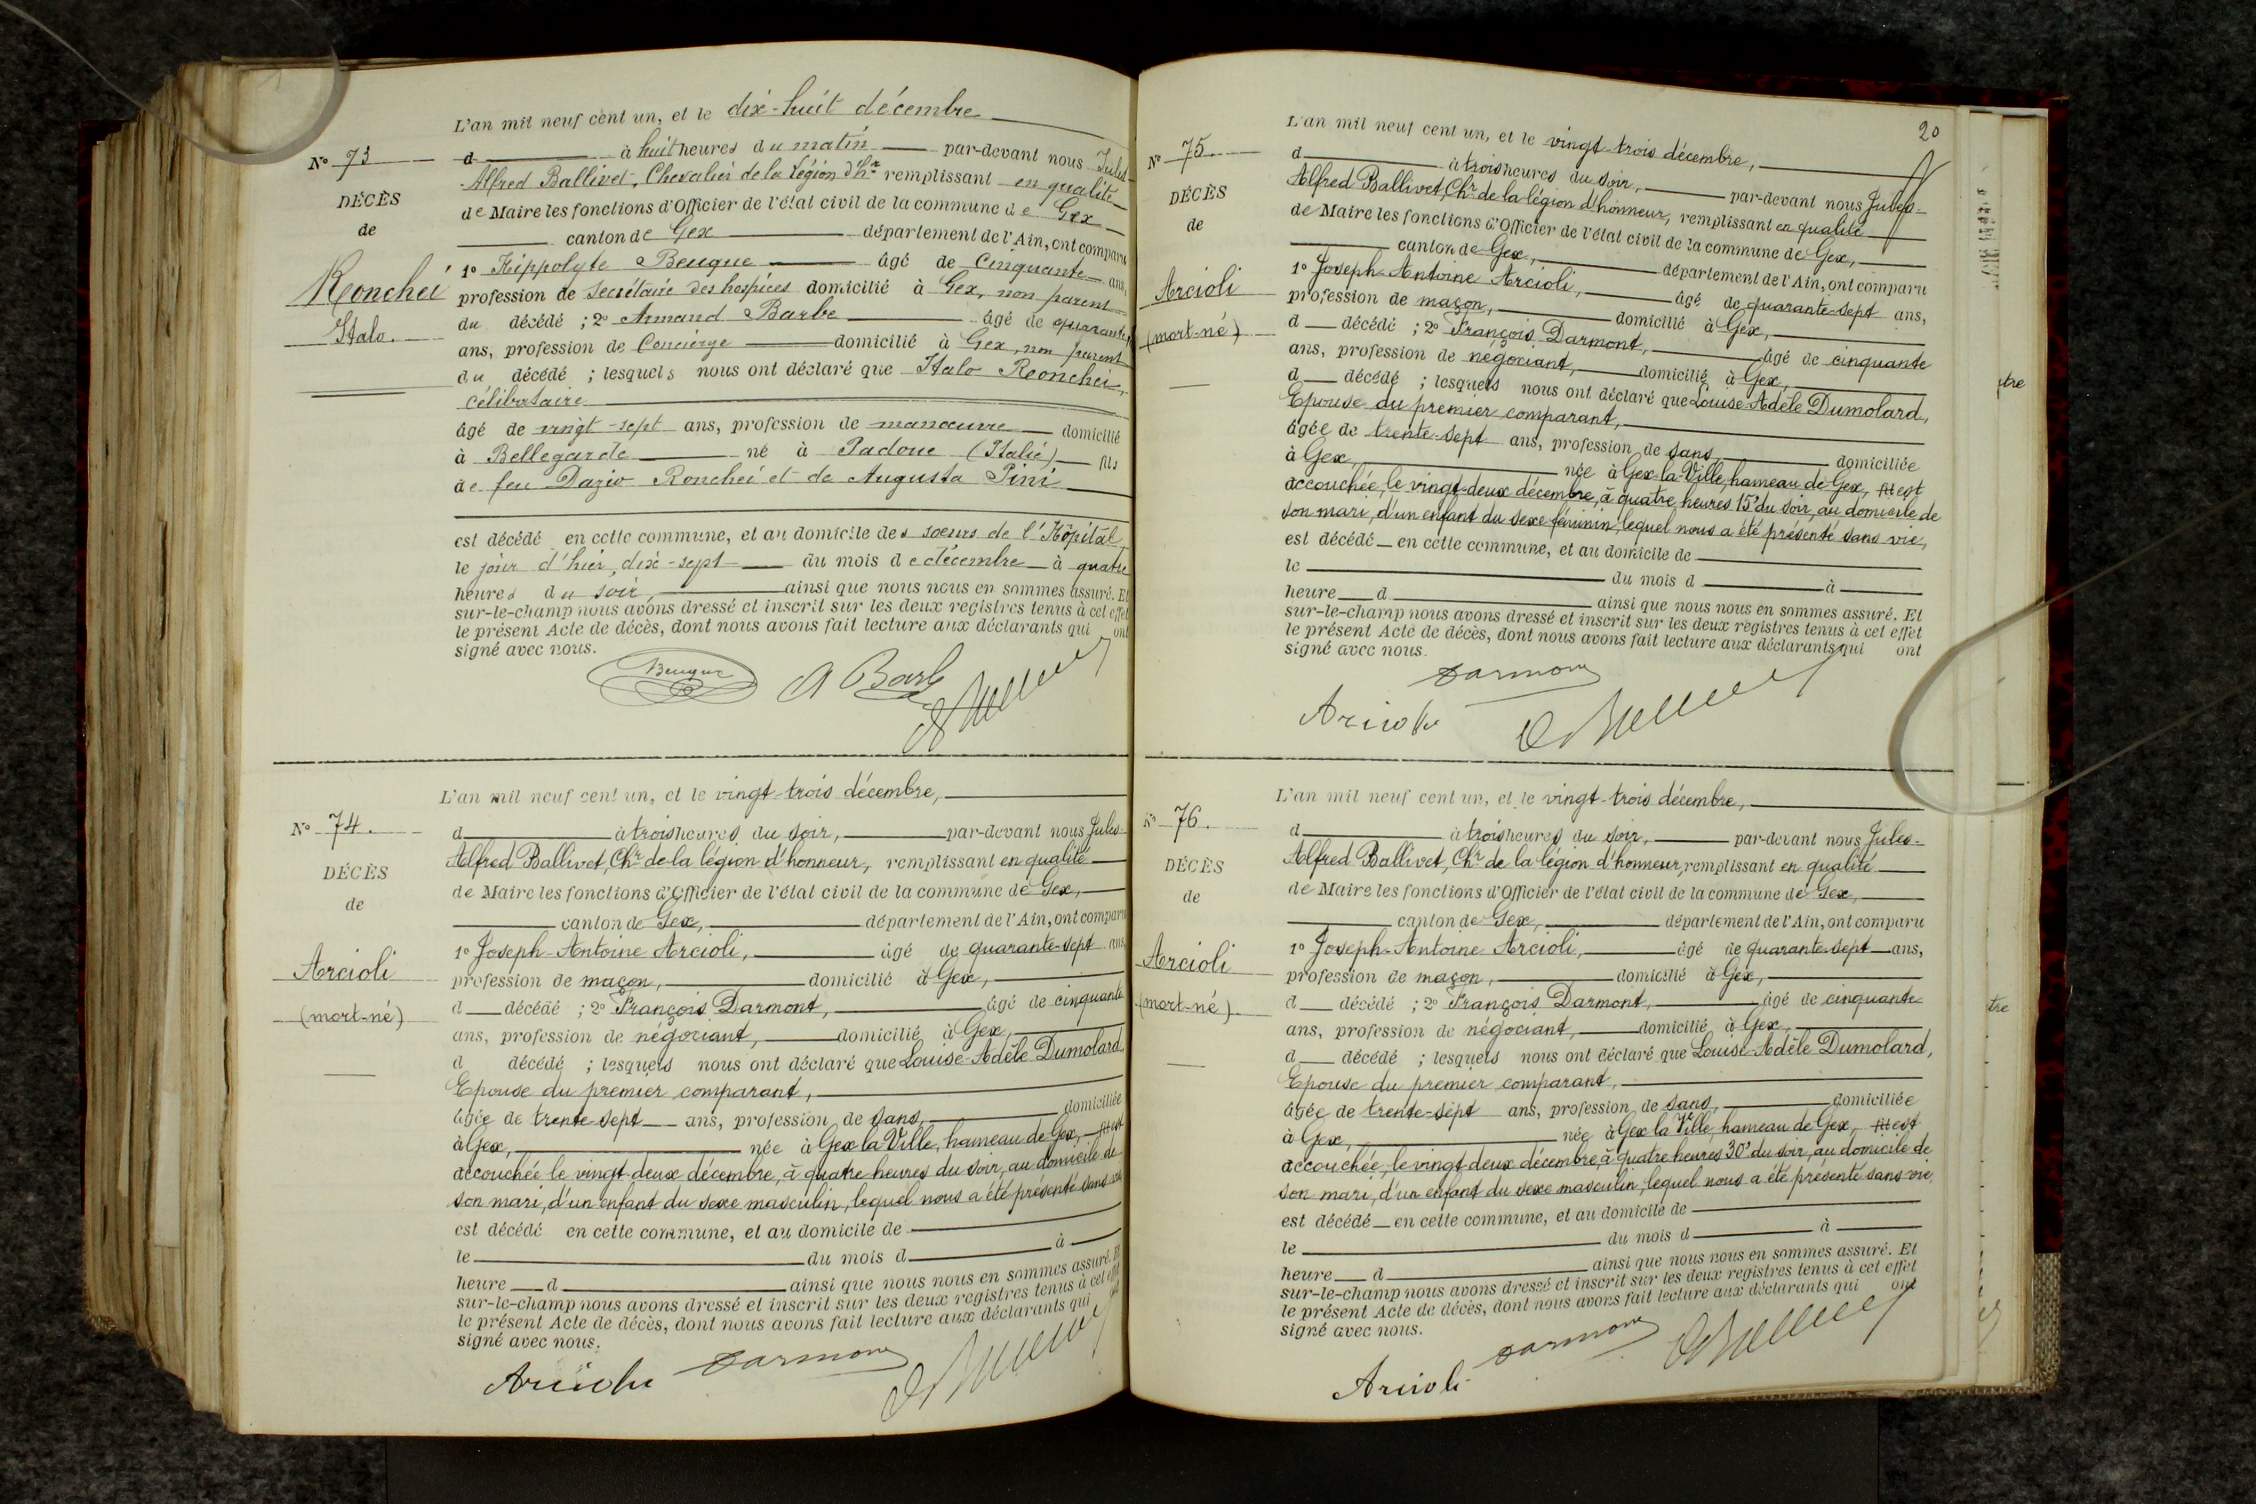 L'an mil neuf cent un, et le dix-huit décembre
N° 73 d à huit heures du matin par-devant nous Jules
Alfred Ballivet, Chevalier de la Légion d'hr remplissant en qualité
DÉCÈS
de Maire les fonctions d'Officier de l'état civil de la commune de Gex
de
canton de Gex département de l'Ain, ont comparu
1° Hippolyte Beuque âgé de Cinquante ans,
Ronchei
profession de Secrétaire des hospices domicilié à Gex, non parent
du décédé ; 2° Armand Barbe âgé de quarante
Italo.
ans, profession de Concierge domicilié à Gex, non parent
du décédé ; lesquels nous ont déclaré que Italo Ronchei,
célibataire
âgé de vingt-sept ans, profession de manœuvre domicilié
à Bellegarde né à Padoue (Italie) fils
de feu Dazio Ronchei et de Augusta Pini
est décédé en cette commune, et au domicile des sœurs de l'Hôpital
le jour d'hier, dix-sept du mois de décembre à quatre
heures du soir, ainsi que nous nous en sommes assuré. Et
sur-le-champ nous avons dressé et inscrit sur les deux registres tenus à cet effet
le présent Acte de décès, dont nous avons fait lecture aux déclarants qui ont
signé avec nous.
Beuque A Barbe
L'an mil neuf cent un, et le vingt-trois décembre,
N° 74. d à trois heures du soir, par-devant nous Jules-
Alfred Ballivet, Chr de la légion d'honneur, remplissant en qualité
DÉCÈS
de Maire les fonctions d'Officier de l'état civil de la commune de Gex,
de
canton de Gex, département de l'Ain, ont comparu
1° Joseph-Antoine Arcioli, âgé de quarante-sept ans,
Arcioli
profession de maçon, domicilié à Gex,
(mort-né)
d décédé ; 2° François Darmont, âgé de cinquante
ans, profession de négociant, domicilié à Gex,
d décédé ; lesquels nous ont déclaré que Louise-Adèle Dumolard,
Epouse du premier comparant,
âgée de trente-sept ans, profession de sans, domiciliée
à Gex, née à Gex la Ville, hameau de Gex, fil est
accouchée le vingt-deux décembre, à quatre heures du soir, au domicile de
son mari, d'un enfant du sexe masculin, lequel nous a été présenté sans vie
est décédé en cette commune, et au domicile de
le du mois d à
heure d ainsi que nous nous en sommes assuré. Et
sur-le-champ nous avons dressé et inscrit sur les deux registres tenus à cet effet
le présent Acte de décès, dont nous avons fait lecture aux déclarants qui
signé avec nous.
Arcioli Darmont
20
L'an mil neuf cent un, et le vingt-trois décembre,
N° 75. d à trois heures du soir, par-devant nous Jules-
Alfred Ballivet, Chr de la légion d'honneur, remplissant en qualité
DÉCÈS
de Maire les fonctions d'Officier de l'état civil de la commune de Gex,
de
canton de Gex, département de l'Ain, ont comparu
1° Joseph-Antoine Arcioli, âgé de quarante-sept ans,
Arcioli
profession de maçon, domicilié à Gex,
(mort-né)
d décédé ; 2° François Darmont, âgé de cinquante
ans, profession de négociant, domicilié à Gex,
d décédé ; lesquels nous ont déclaré que Louise-Adèle Dumolard,
Epouse du premier comparant,
âgée de trente-sept ans, profession de sans, domiciliée
à Gex, née à Gex-la-Ville, hameau de Gex, fil est
accouchée, le vingt-deux décembre, à quatre heures 15' du soir, au domicile de
son mari, d'un enfant du sexe féminin, lequel nous a été présenté sans vie,
est décédé en cette commune, et au domicile de
le du mois d à
heure d ainsi que nous nous en sommes assuré. Et
sur-le-champ nous avons dressé et inscrit sur les deux registres tenus à cet effet
le présent Acte de décès, dont nous avons fait lecture aux déclarants qui ont
signé avec nous.
Darmont
Arcioli
L'an mil neuf cent un, et le vingt-trois décembre,
N° 76. d à trois heures du soir, par-devant nous Jules-
Alfred Ballivet, Chr de la légion d'honneur, remplissant en qualité
DÉCÈS
de Maire les fonctions d'Officier de l'état civil de la commune de Gex,
de
canton de Gex, département de l'Ain, ont comparu
1° Joseph-Antoine Arcioli, âgé de quarante-sept ans,
Arcioli
profession de maçon, domicilié à Gex,
(mort-né)
d décédé ; 2° François Darmont, âgé de cinquante
ans, profession de négociant, domicilié à Gex,
d décédé ; lesquels nous ont déclaré que Louise-Adèle Dumolard,
Epouse du premier comparant,
âgée de trente-sept ans, profession de sans, domiciliée
à Gex, née à Gex la Ville, hameau de Gex, fil est
accouchée, le vingt-deux décembre, à quatre heures 30' du soir, au domicile de
son mari, d'un enfant du sexe masculin, lequel nous a été présenté sans vie,
est décédé en cette commune, et au domicile de
le du mois d à
heure d ainsi que nous nous en sommes assuré. Et
sur-le-champ nous avons dressé et inscrit sur les deux registres tenus à cet effet
le présent Acte de décès, dont nous avons fait lecture aux déclarants qui ont
signé avec nous.
Arcioli Darmont